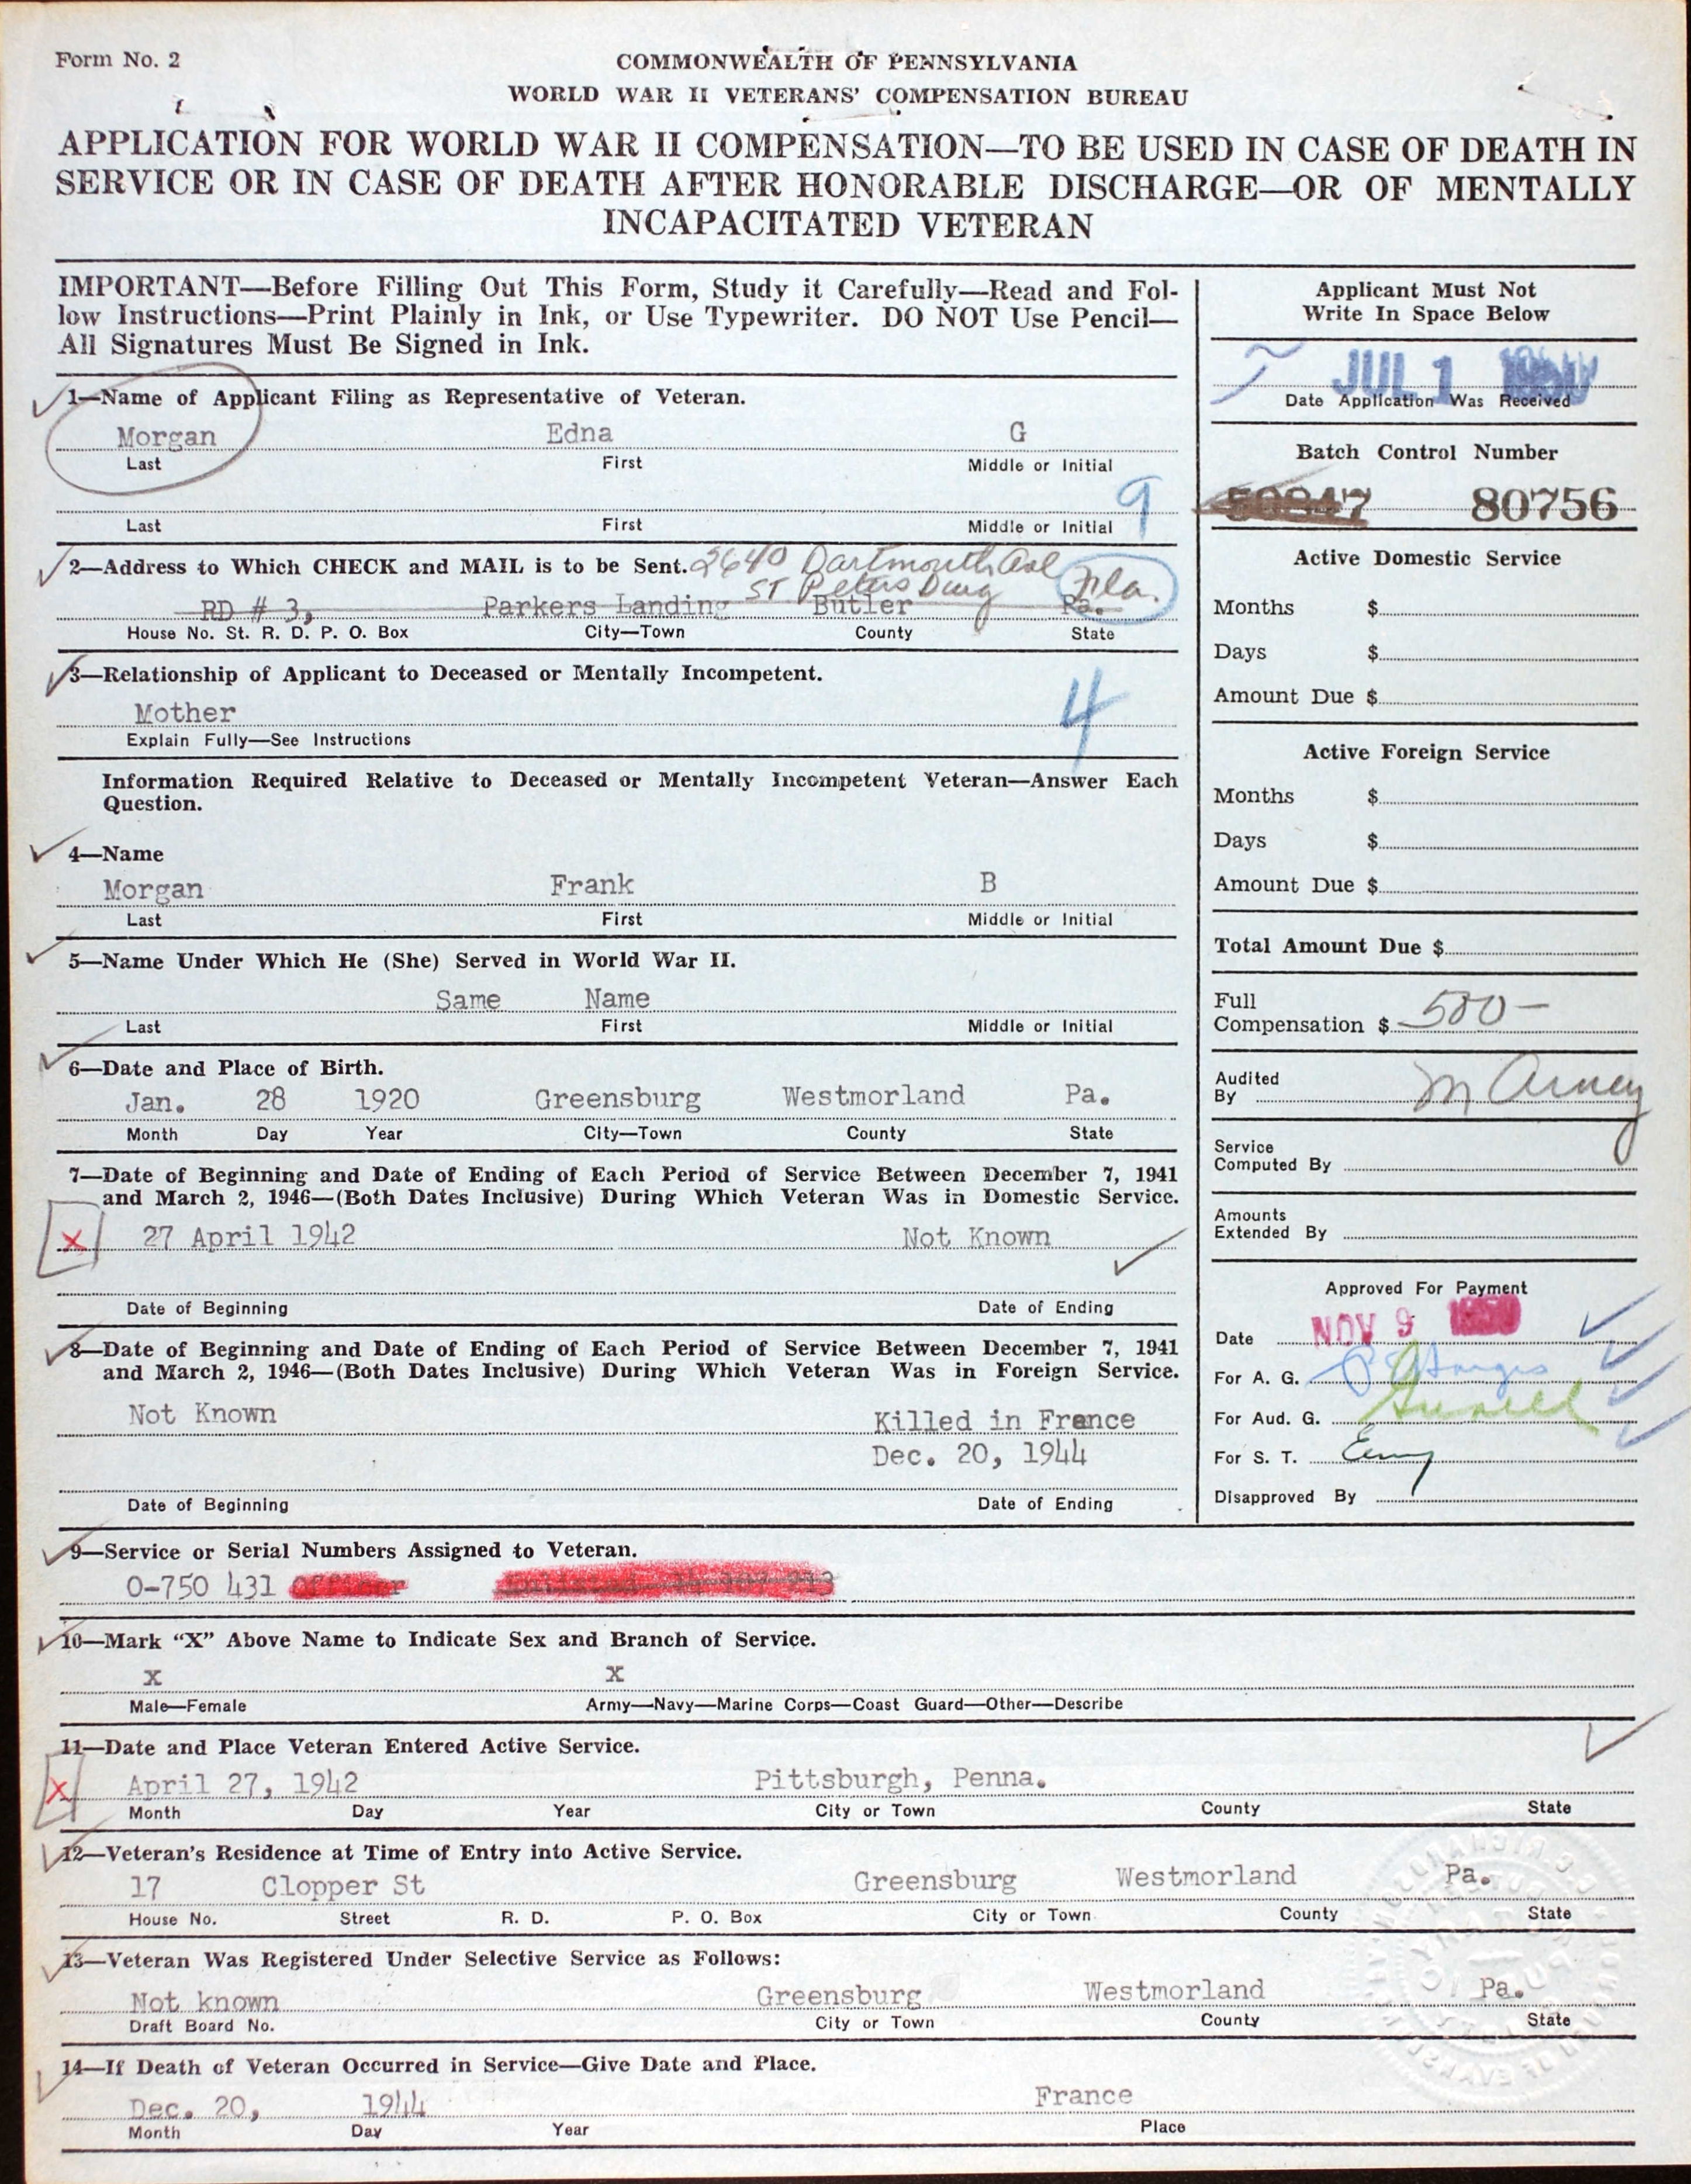 Form No. 2
COMMONWEALTH OF PENNSYLVANIA
WORLD WAR II VETERANS' COMPENSATION BUREAU
APPLICATION FOR WORLD WAR II COMPENSATION—TO BE USED IN CASE OF DEATH IN
SERVICE OR IN CASE OF DEATH AFTER HONORABLE DISCHARGE—OR OF MENTALLY
INCAPACITATED VETERAN
IMPORTANT—Before Filling Out This Form, Study it Carefully—Read and Fol-
low Instructions—Print Plainly in Ink, or Use Typewriter. DO NOT Use Pencil—
All Signatures Must Be Signed in Ink.
1—Name of Applicant Filing as Representative of Veteran.
Morgan Edna G
Last First Middle or Initial
9
Last First Middle or Initial
2—Address to Which CHECK and MAIL is to be Sent. 2640 Dartmouth Ave
St Petersburg Fla.
RD # 3, Parkers Landing Butler Pa.
House No. St. R. D. P. O. Box City—Town County State
3—Relationship of Applicant to Deceased or Mentally Incompetent.
Mother 4
Explain Fully—See Instructions
Information Required Relative to Deceased or Mentally Incompetent Veteran—Answer Each
Question.
4—Name
Morgan Frank B
Last First Middle or Initial
5—Name Under Which He (She) Served in World War II.
Same Name
Last First Middle or Initial
6—Date and Place of Birth.
Jan. 28 1920 Greensburg Westmorland Pa.
Month Day Year City—Town County State
7—Date of Beginning and Date of Ending of Each Period of Service Between December 7, 1941
and March 2, 1946—(Both Dates Inclusive) During Which Veteran Was in Domestic Service.
X 27 April 1942 Not Known
Date of Beginning Date of Ending
8—Date of Beginning and Date of Ending of Each Period of Service Between December 7, 1941
and March 2, 1946—(Both Dates Inclusive) During Which Veteran Was in Foreign Service.
Not Known Killed in France
Dec. 20, 1944
Date of Beginning Date of Ending
Applicant Must Not
Write In Space Below
JUL 1 1950
Date Application Was Received
Batch Control Number
50847 80756
Active Domestic Service
Months $
Days $
Amount Due $
Active Foreign Service
Months $
Days $
Amount Due $
Total Amount Due $
Full
Compensation $ 500—
Audited
By
Service
Computed By
Amounts
Extended By
Approved For Payment
Date NOV 9 1950
For A. G.
For Aud. G.
For S. T.
Disapproved By
9—Service or Serial Numbers Assigned to Veteran.
O-750 431 Officer
10—Mark "X" Above Name to Indicate Sex and Branch of Service.
X X
Male—Female Army—Navy—Marine Corps—Coast Guard—Other—Describe
11—Date and Place Veteran Entered Active Service.
X April 27, 1942 Pittsburgh, Penna.
Month Day Year City or Town County State
12—Veteran's Residence at Time of Entry into Active Service.
17 Clopper St Greensburg Westmorland Pa.
House No. Street R. D. P. O. Box City or Town County State
13—Veteran Was Registered Under Selective Service as Follows:
Not known Greensburg Westmorland Pa.
Draft Board No. City or Town County State
14—If Death of Veteran Occurred in Service—Give Date and Place.
Dec. 20, 1944 France
Month Day Year Place